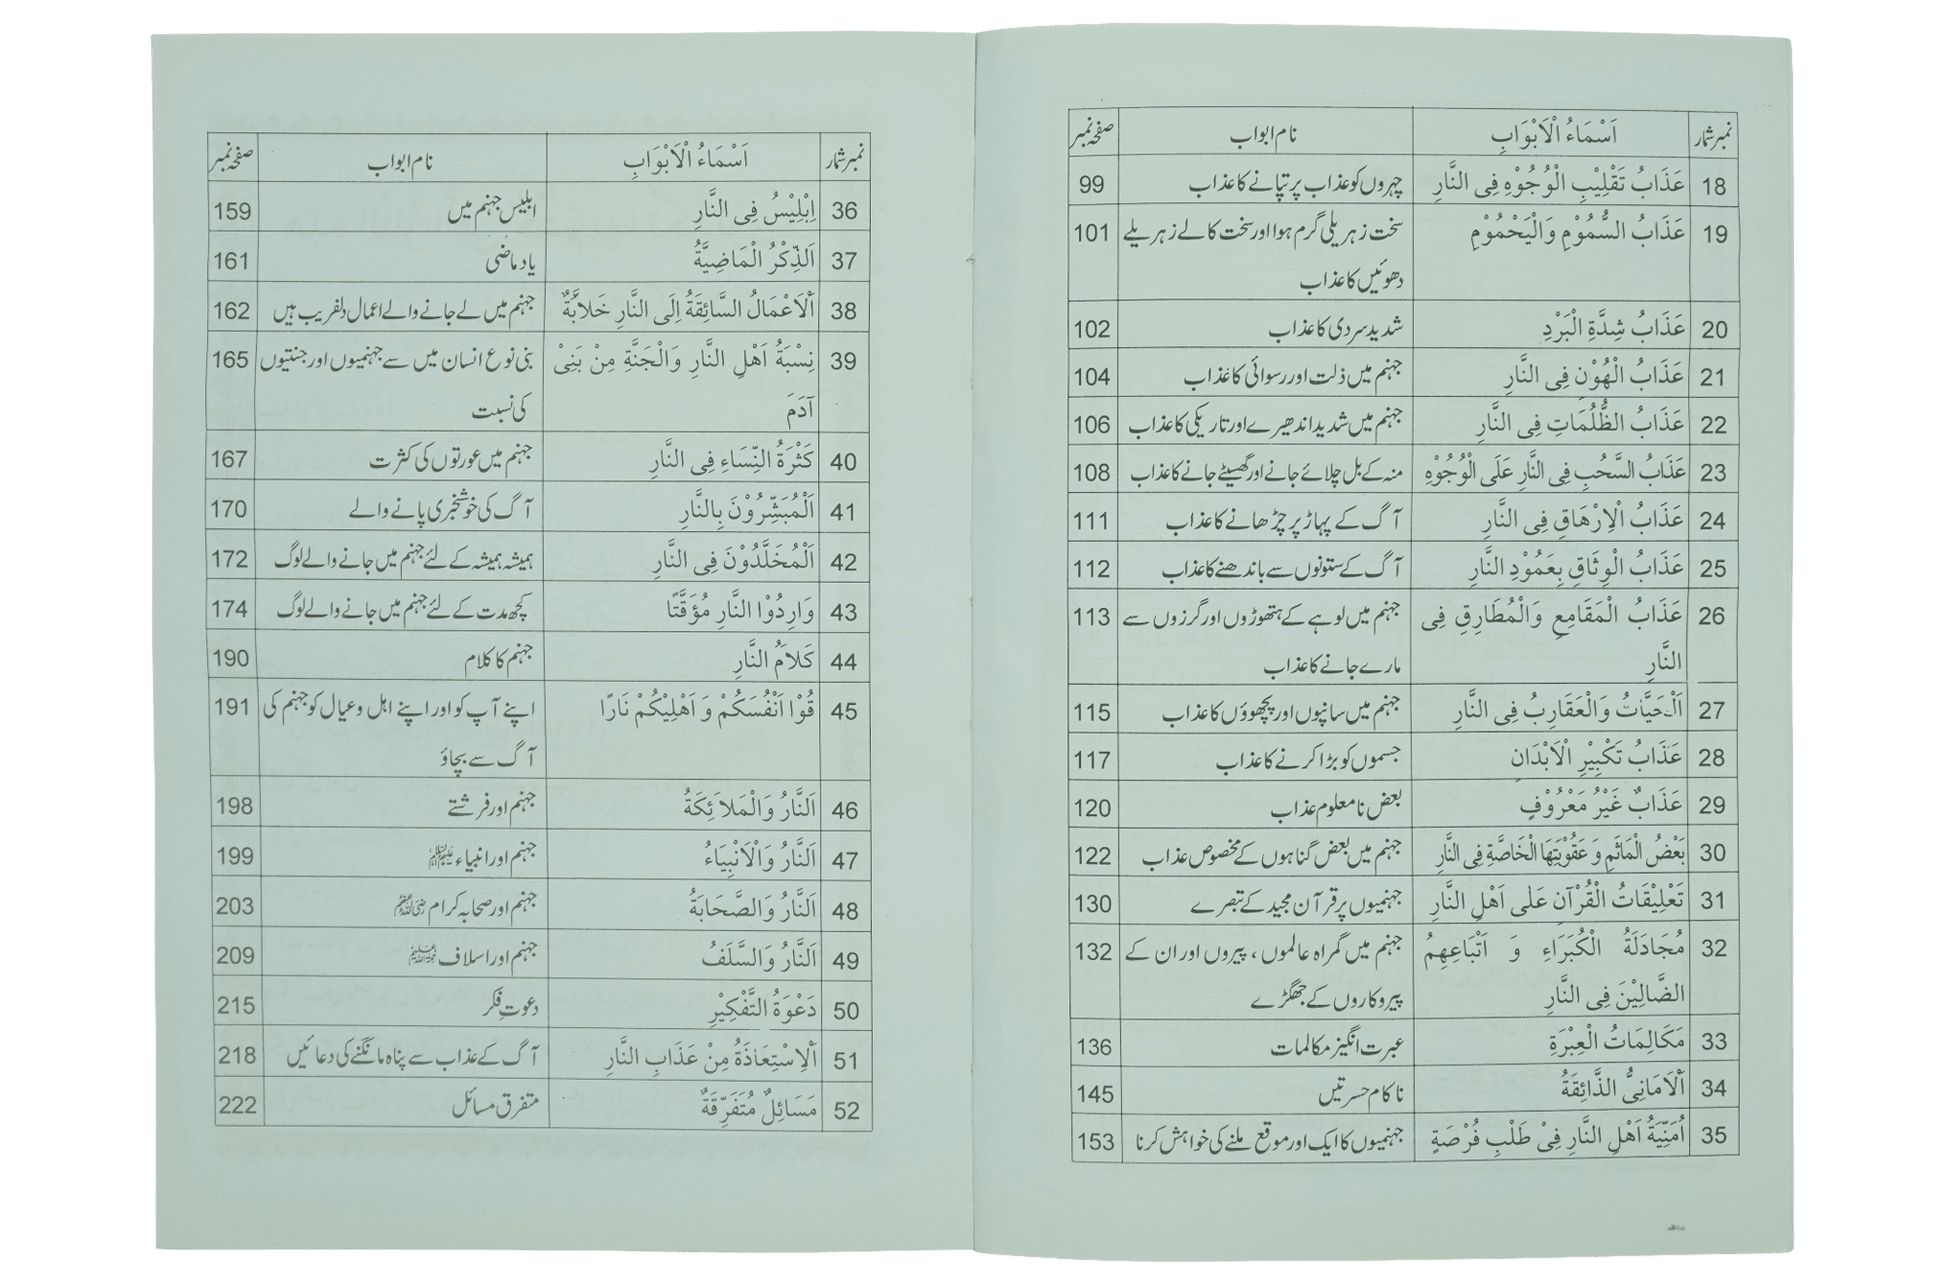 نمبر شمار اَسْمَاءُ الْاَبْوَابِ نام ابواب صفحہ نمبر
18 عَذَابُ تَقْلِيْبِ الْوُجُوْهِ فِى النَّارِ چہروں کو عذاب پر تپانے کا عذاب 99
19 عَذَابُ السُّمُوْمِ وَالْيَحْمُوْمِ سخت زہریلی گرم ہوا اور سخت کالے زہریلے 101
دھوئیں کا عذاب
20 عَذَابُ شِدَّةِ الْبَرْدِ شدید سردی کا عذاب 102
21 عَذَابُ الْهُوْنِ فِى النَّارِ جہنم میں ذلت اور رسوائی کا عذاب 104
22 عَذَابُ الظُّلُمَاتِ فِى النَّارِ جہنم میں شدید اندھیرے اور تاریکی کا عذاب 106
23 عَذَابُ السَّحُبِ فِى النَّارِ عَلَى الْوُجُوْهِ منہ کے بل چلائے جانے اور گھسیٹے جانے کا عذاب 108
24 عَذَابُ الْاِرْهَاقِ فِى النَّارِ آگ کے پہاڑ پر چڑھانے کا عذاب 111
25 عَذَابُ الْوِثَاقِ بِعَمُوْدِ النَّارِ آگ کے ستونوں سے باندھنے کا عذاب 112
26 عَذَابُ الْمَقَامِعِ وَالْمُطَارِقِ فِى جہنم میں لوہے کے ہتھوڑوں اور گرزوں سے 113
النَّارِ مارے جانے کا عذاب
27 اَلْحَيَّاتُ وَالْعَقَارِبُ فِى النَّارِ جہنم میں سانپوں اور بچھوؤں کا عذاب 115
28 عَذَابُ تَكْبِيْرِ الْاَبْدَانِ جسموں کو بڑا کرنے کا عذاب 117
29 عَذَابٌ غَيْرُ مَعْرُوْفٍ بعض نامعلوم عذاب 120
30 بَعْضُ الْمَاثَمِ وَ عَقُوْبَتِهَا الْخَاصَّةِ فِى النَّارِ جہنم میں بعض گناہوں کے مخصوص عذاب 122
31 تَعْلِيْقَاتُ الْقُرْآنِ عَلٰى اَهْلِ النَّارِ جہنمیوں پر قرآن مجید کے تبصرے 130
32 مُجَادَلَةُ الْكُبَرَاءِ وَ اَتْبَاعِهِمُ جہنم میں گمراہ عالموں ، پیروں اور ان کے 132
الضَّالِيْنَ فِى النَّارِ پیروکاروں کے جھگڑے
33 مَكَالِمَاتُ الْعِبْرَةِ عبرت انگیز مکالمات 136
34 اَلْاَمَانِىُّ الذَّائِقَةُ ناکام حسرتیں 145
35 اُمْنِّيَةُ اَهْلِ النَّارِ فِىْ طَلْبِ فُرْصَةٍ جہنمیوں کا ایک اور موقع ملنے کی خواہش کرنا 153
نمبر شمار اَسْمَاءُ الْاَبْوَابِ نام ابواب صفحہ نمبر
36 اِبْلِيْسُ فِى النَّارِ ابلیس جہنم میں 159
37 اَلذِّكْرُ الْمَاضِيَّةُ یاد ماضی 161
38 اَلْاَعْمَالُ السَّائِقَةُ اِلَى النَّارِ خَلَابَّةٌ جہنم میں لے جانے والے اعمال دلفریب ہیں 162
39 نِسْبَةُ اَهْلِ النَّارِ وَالْجَنَّةِ مِنْ بَنِىْ بنی نوع انسان میں سے جہنمیوں اور جنتیوں 165
آدَمَ کی نسبت
40 كَثْرَةُ النِّسَاءِ فِى النَّارِ جہنم میں عورتوں کی کثرت 167
41 اَلْمُبَشِّرُوْنَ بِالنَّارِ آگ کی خوشخبری پانے والے 170
42 اَلْمُخَلَّدُوْنَ فِى النَّارِ ہمیشہ ہمیشہ کے لئے جہنم میں جانے والے لوگ 172
43 وَارِدُوْا النَّارِ مُؤَقَّتًا کچھ مدت کے لئے جہنم میں جانے والے لوگ 174
44 كَلَامُ النَّارِ جہنم کا کلام 190
45 قُوْا اَنْفُسَكُمْ وَ اَهْلِيْكُمْ نَارًا اپنے آپ کو اور اپنے اہل و عیال کو جہنم کی 191
آگ سے بچاؤ
46 اَلنَّارُ وَالْمَلَائِكَةُ جہنم اور فرشتے 198
47 اَلنَّارُ وَالْاَنْبِيَاءُ جہنم اور انبیاء 199
48 اَلنَّارُ وَالصَّحَابَةُ جہنم اور صحابہ کرام 203
49 اَلنَّارُ وَالسَّلَفُ جہنم اور اسلاف 209
50 دَعْوَةُ التَّفْكِيْرِ دعوت فکر 215
51 اَلْاِسْتِعَاذَةُ مِنْ عَذَابِ النَّارِ آگ کے عذاب سے پناہ مانگنے کی دعائیں 218
52 مَسَائِلٌ مُتَفَرِّقَةٌ متفرق مسائل 222